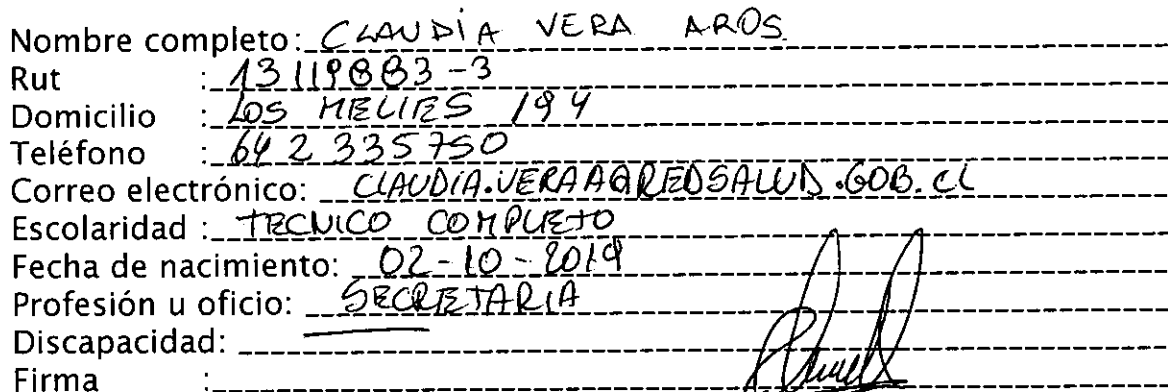 Nombre completo: CLAUDIA VERA AROS
Rut : 13119883-3
Domicilio : LOS MELIES 194
Teléfono : 642335750
Correo electrónico: CLAUDIA.VERAA@REDSALUD.GOB.CL
Escolaridad : TECNICO COMPLETO
Fecha de nacimiento: 02-10-2019
Profesión u oficio: SECRETARIA
Discapacidad:
Firma :